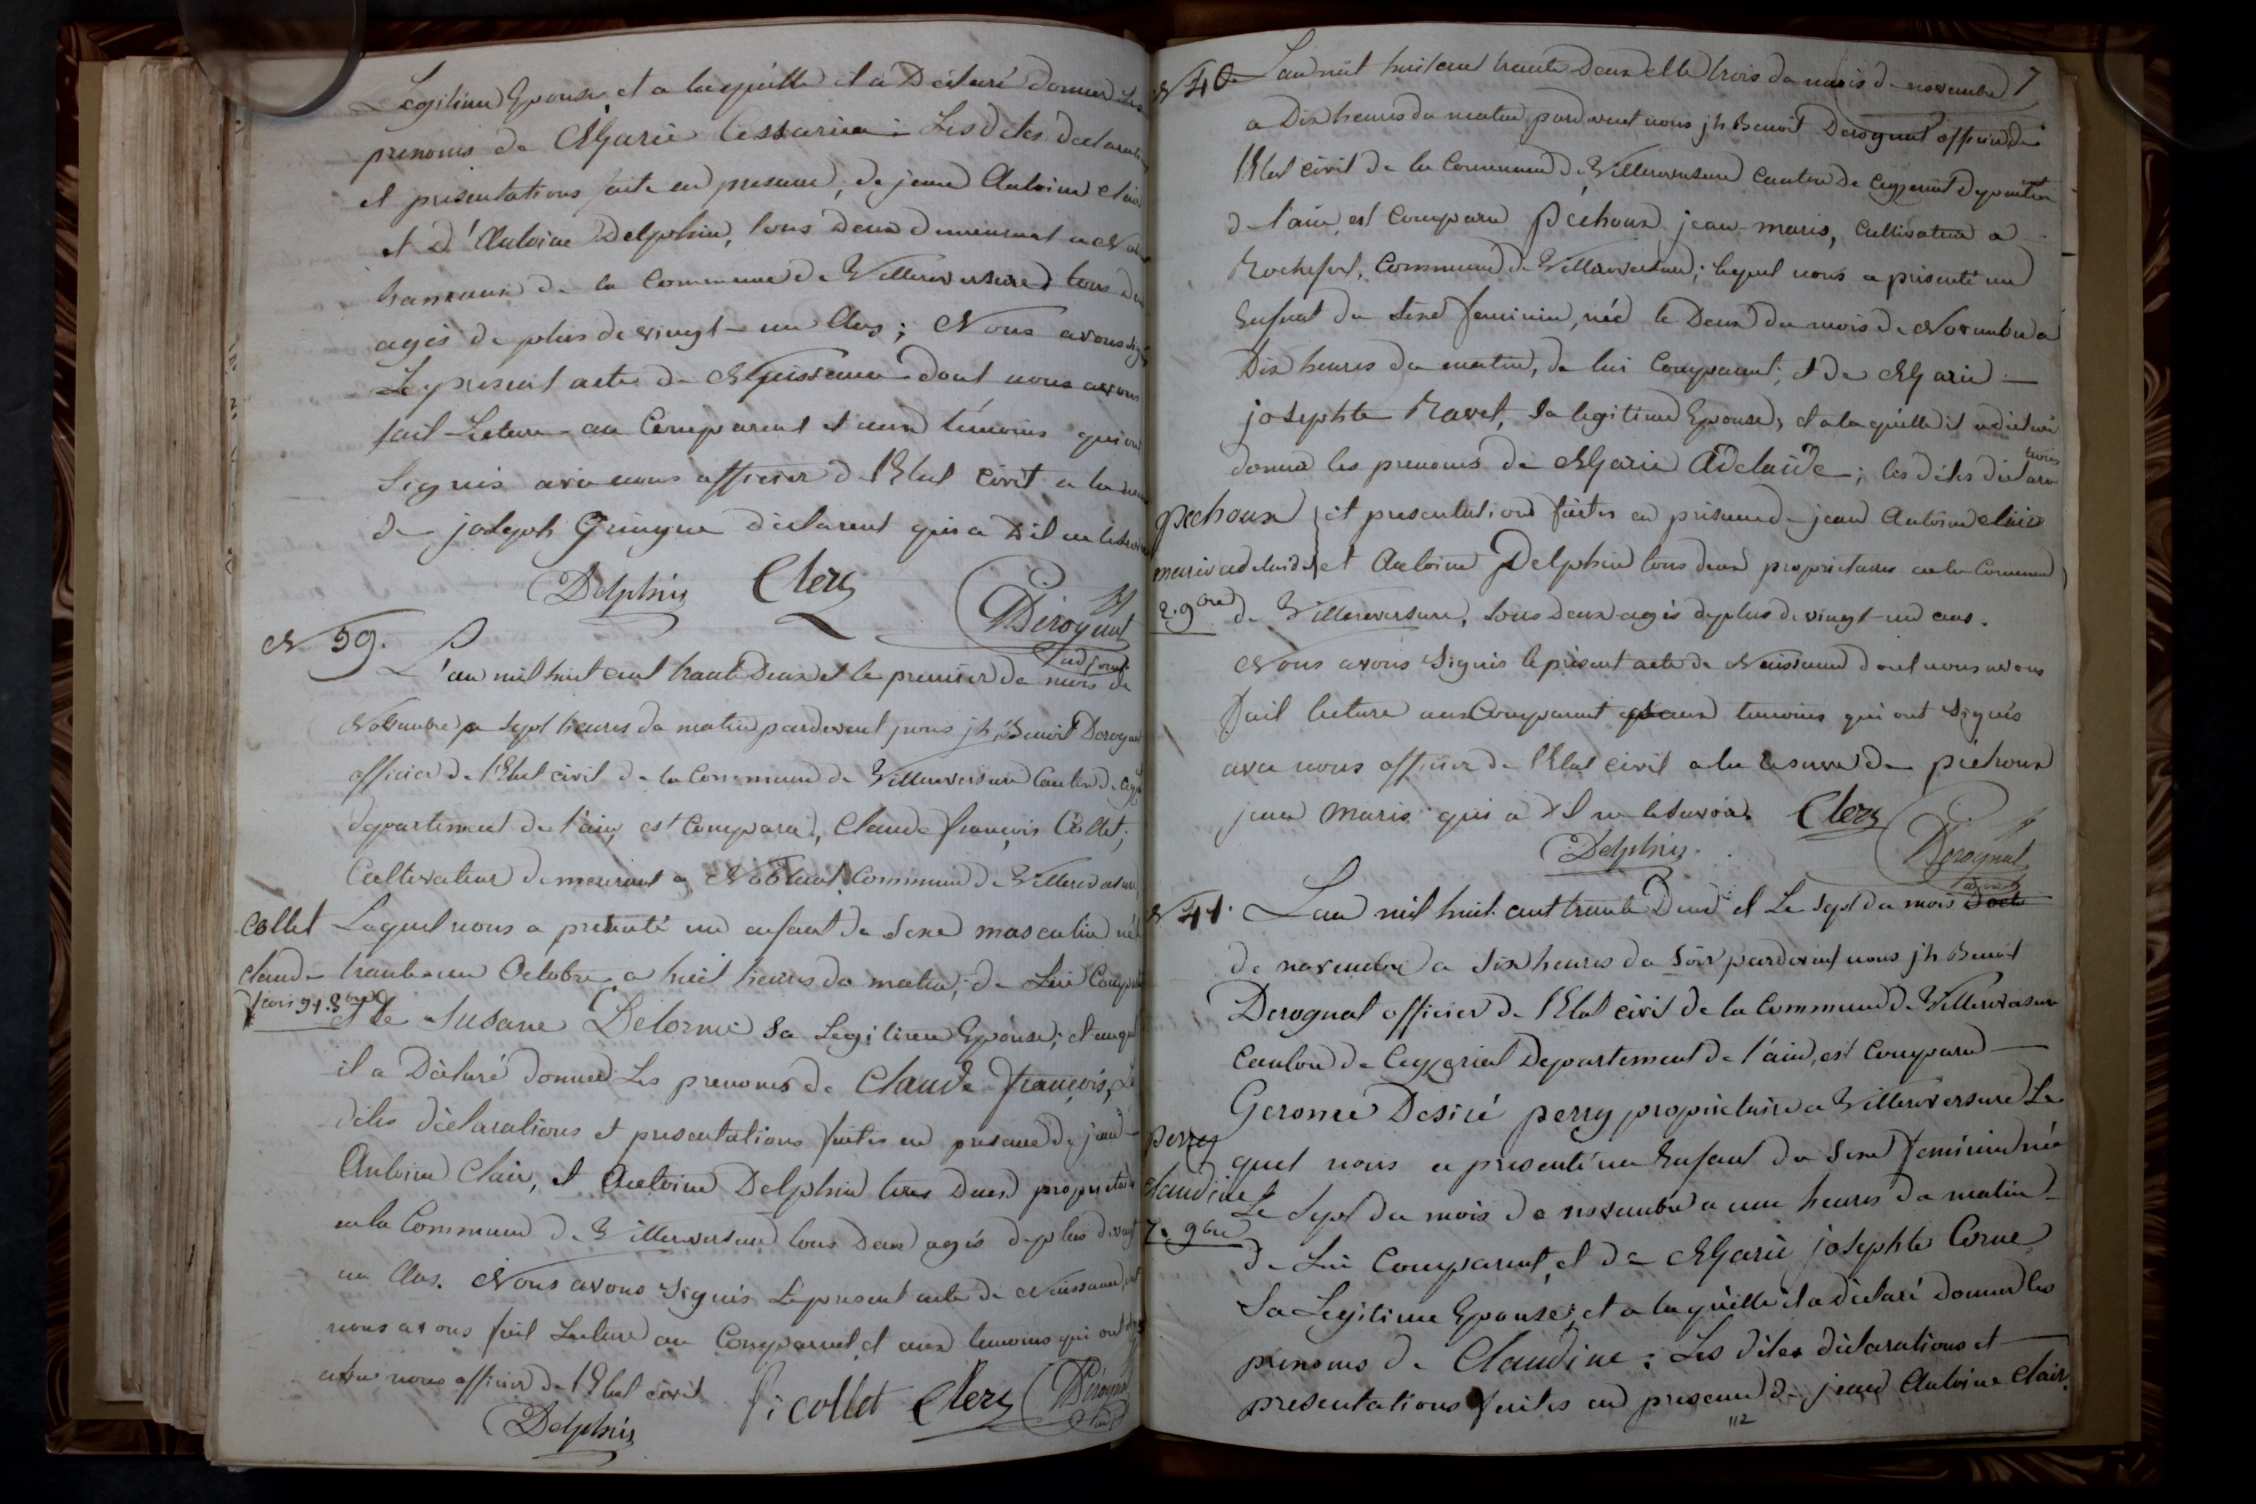 Legitime Epouse, et a laquelle il a Déclaré donner les
prenoms de Marie Cessarine : Lesdites declarations
et présentations faite en presance, de jean Antoine Clair
et d'Antoine Delphin, tous deux demeurant a
hameaux de la Commune de Villereversure, tous deux
agés de plus de vingt-un Ans ; Nous avons signé
Le present acte de Naissance dont nous avons
fait Lecture au Comparant et aux témoins qui ont
Signés avec nous officier de l'Etat Civil a la reserve
de joseph Guingue déclarent qui a Dit ne le savoir
Delphin Clerc Derognat
adjoint
N 39.
L'an mil huit cent trente Deux et le premier du mois de
Novembre a sept heures du matin pardevant nous jh Benoit Derognat
officier de l'Etat civil de la Commune de Villereversure Canton de
departement de l'ain, est Comparu, Claude françois Collet,
Cultivateur demeurant a Noblant Commune de Villereversure,
Collet Lequel nous a présenté un enfant du Sexe masculin né
Claude trente un Octobre, a huit heures du matin, de Lui Comparant
fçois 31. 8bre et de Susane Delorme Sa Legitime Epouse ; et auquel
il a Déclaré donner Les prenoms de Claude françois, Les
dites déclarations et presentations faites en presance de jean
Antoine Clair, et Antoine Delphin tous Deux proprietaires
en la Commune de Villereversure tous Deux agés de plus de vingt
un Ans. Nous avons Signés Le present acte de Naissance dont
nous avons fait Lecture au Comparant et aux temoins qui ont signés
avec nous officier de l'Etat civil
Delphin f. collet Clerc Derognat
N 40 L'an mil huit cent trente Deux et le trois du mois de novembre 7
a Dix heures du matin pardevant nous jh Benoit Derognat officier de
l'Etat civil de la Commune de Villereversure Canton de Ceyzeriat Departement
de l'ain, est Comparu Péchoux jean-marie, Cultivateur a
Rochefort, Commune de Villereversure ; lequel nous a présenté un
Enfant du Sexe feminin, née le Deux du mois de Novembre a
Dix heures du matin, de lui Comparant, et de Marie
josephte Ravet, Sa legitime Epouse, et a laquelle il a déclaré
donner les prenoms de Marie Adelaïde ; les dites déclarations
Pechoux et presentations faites en présence de jean Antoine Clair
marie adelaide et Antoine Delphin tous deux proprietaires en la Commune
2. 9bre de Villereversure, tous Deux agés de plus de vingt-un ans.
Nous avons Signés le présent acte de Naissance dont nous avons
fait lecture aux Comparant et aux temoins qui ont Signés
avec nous officier de l'Etat civil a la reserve de péchoux
jean marie qui a dit ne le savoir. Clerc
Delphin. Derognat
adjoint
N 41. L'an mil huit cent trente Deux et Le Sept du mois
de novembre a Six heures du Soir pardevant nous jh Benoit
Derognat officier de l'Etat civil de la Commune de Villereversure
Canton de Ceyzeriat Departement de l'ain, est Comparu
Gerome Desiré perry proprietaire a Villereversure Le
perry quel nous a presenté un Enfant du Sexe feminin née
claudine Le Sept du mois de novembre a une heures du matin
7. 9bre de Lui Comparant, et de Marie josephte Corne
Sa Legitime Epouse, et a laquelle il a déclaré Donner les
prenoms de Claudine : Les dites déclarations et
presentations faites en presence de jean Antoine Clair.
112